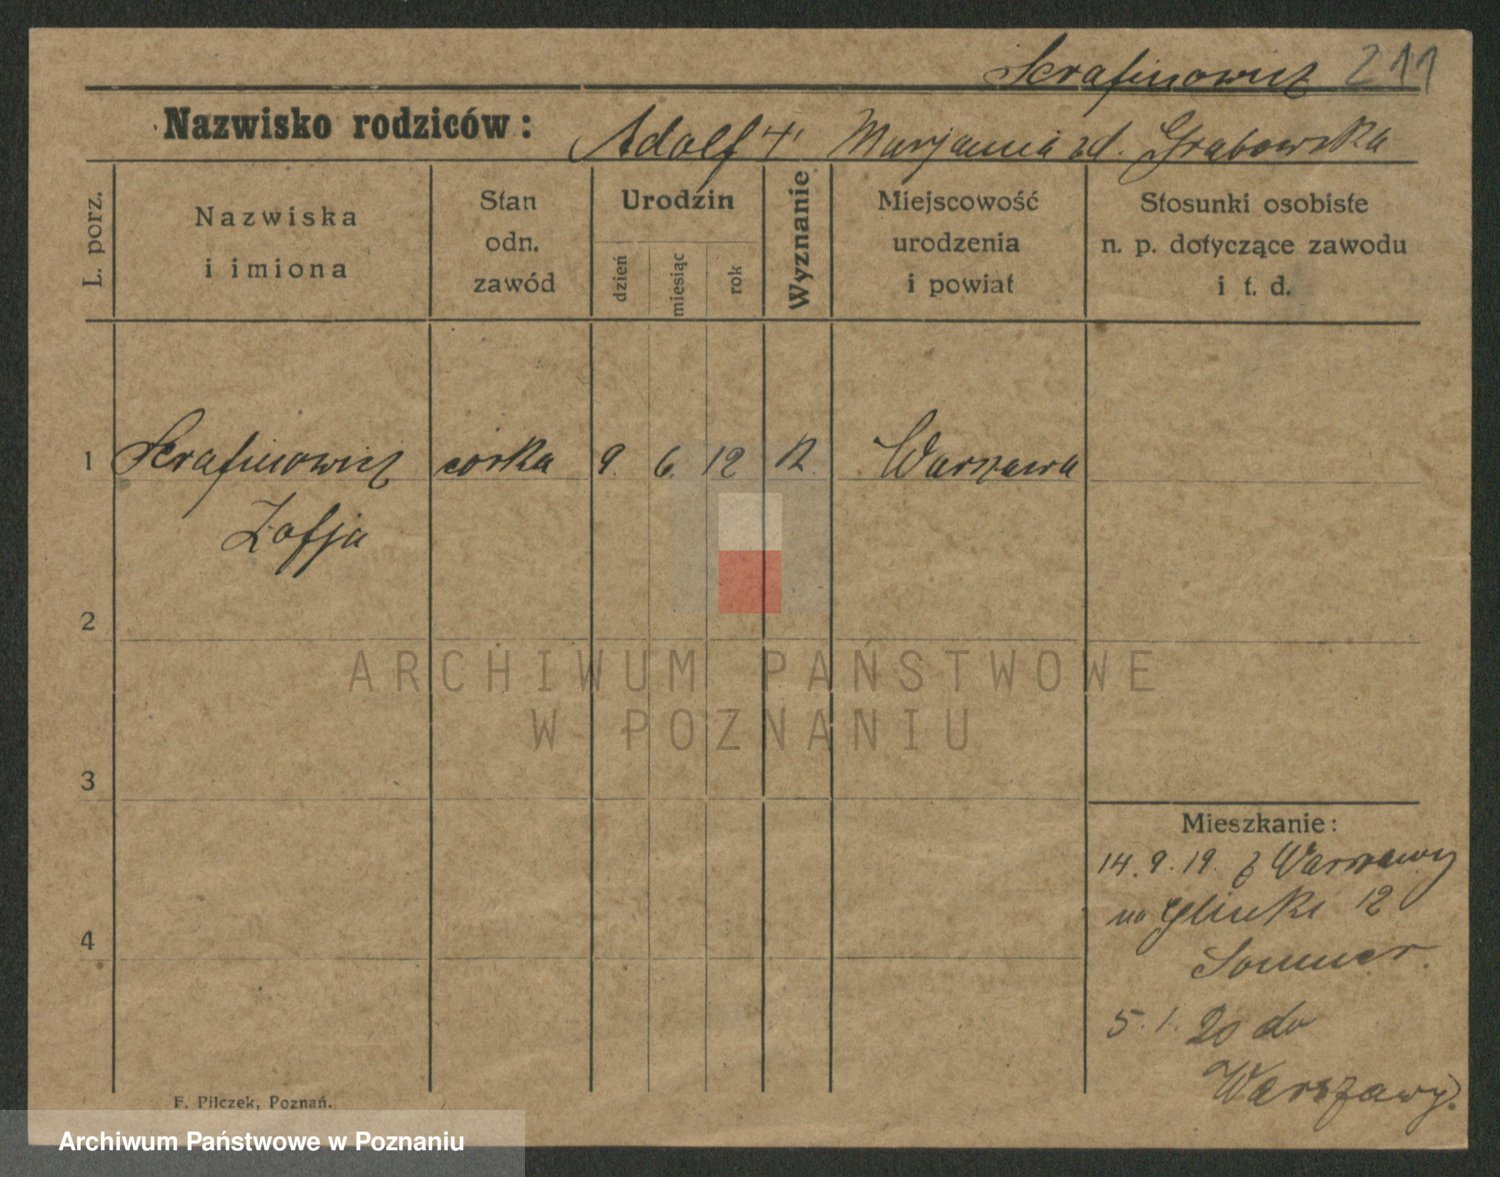 Serafinowicz 211
Nazwisko rodziców: Adolf Marjanna zd. Grabowska
L. porz.
Nazwiska
i imiona
Stan
odn.
zawód
Urodzin
dzień
miesiąc
rok
Wyznanie
Miejscowość
urodzenia
i powiat
Stosunki osobiste
n. p. dotyczące zawodu
i t. d.
1 Serafinowicz córka 9. 6. 12 K. Warszawa
Zofja
2
ARCHIWUM PAŃSTWOWE
W POZNANIU
3
Mieszkanie:
14. 9. 19. z Warszawy
na Glinki 12
4
Sommer.
5. 1. 20 do
Warszawy.
F. Pilczek, Poznań.
Archiwum Państwowe w Poznaniu